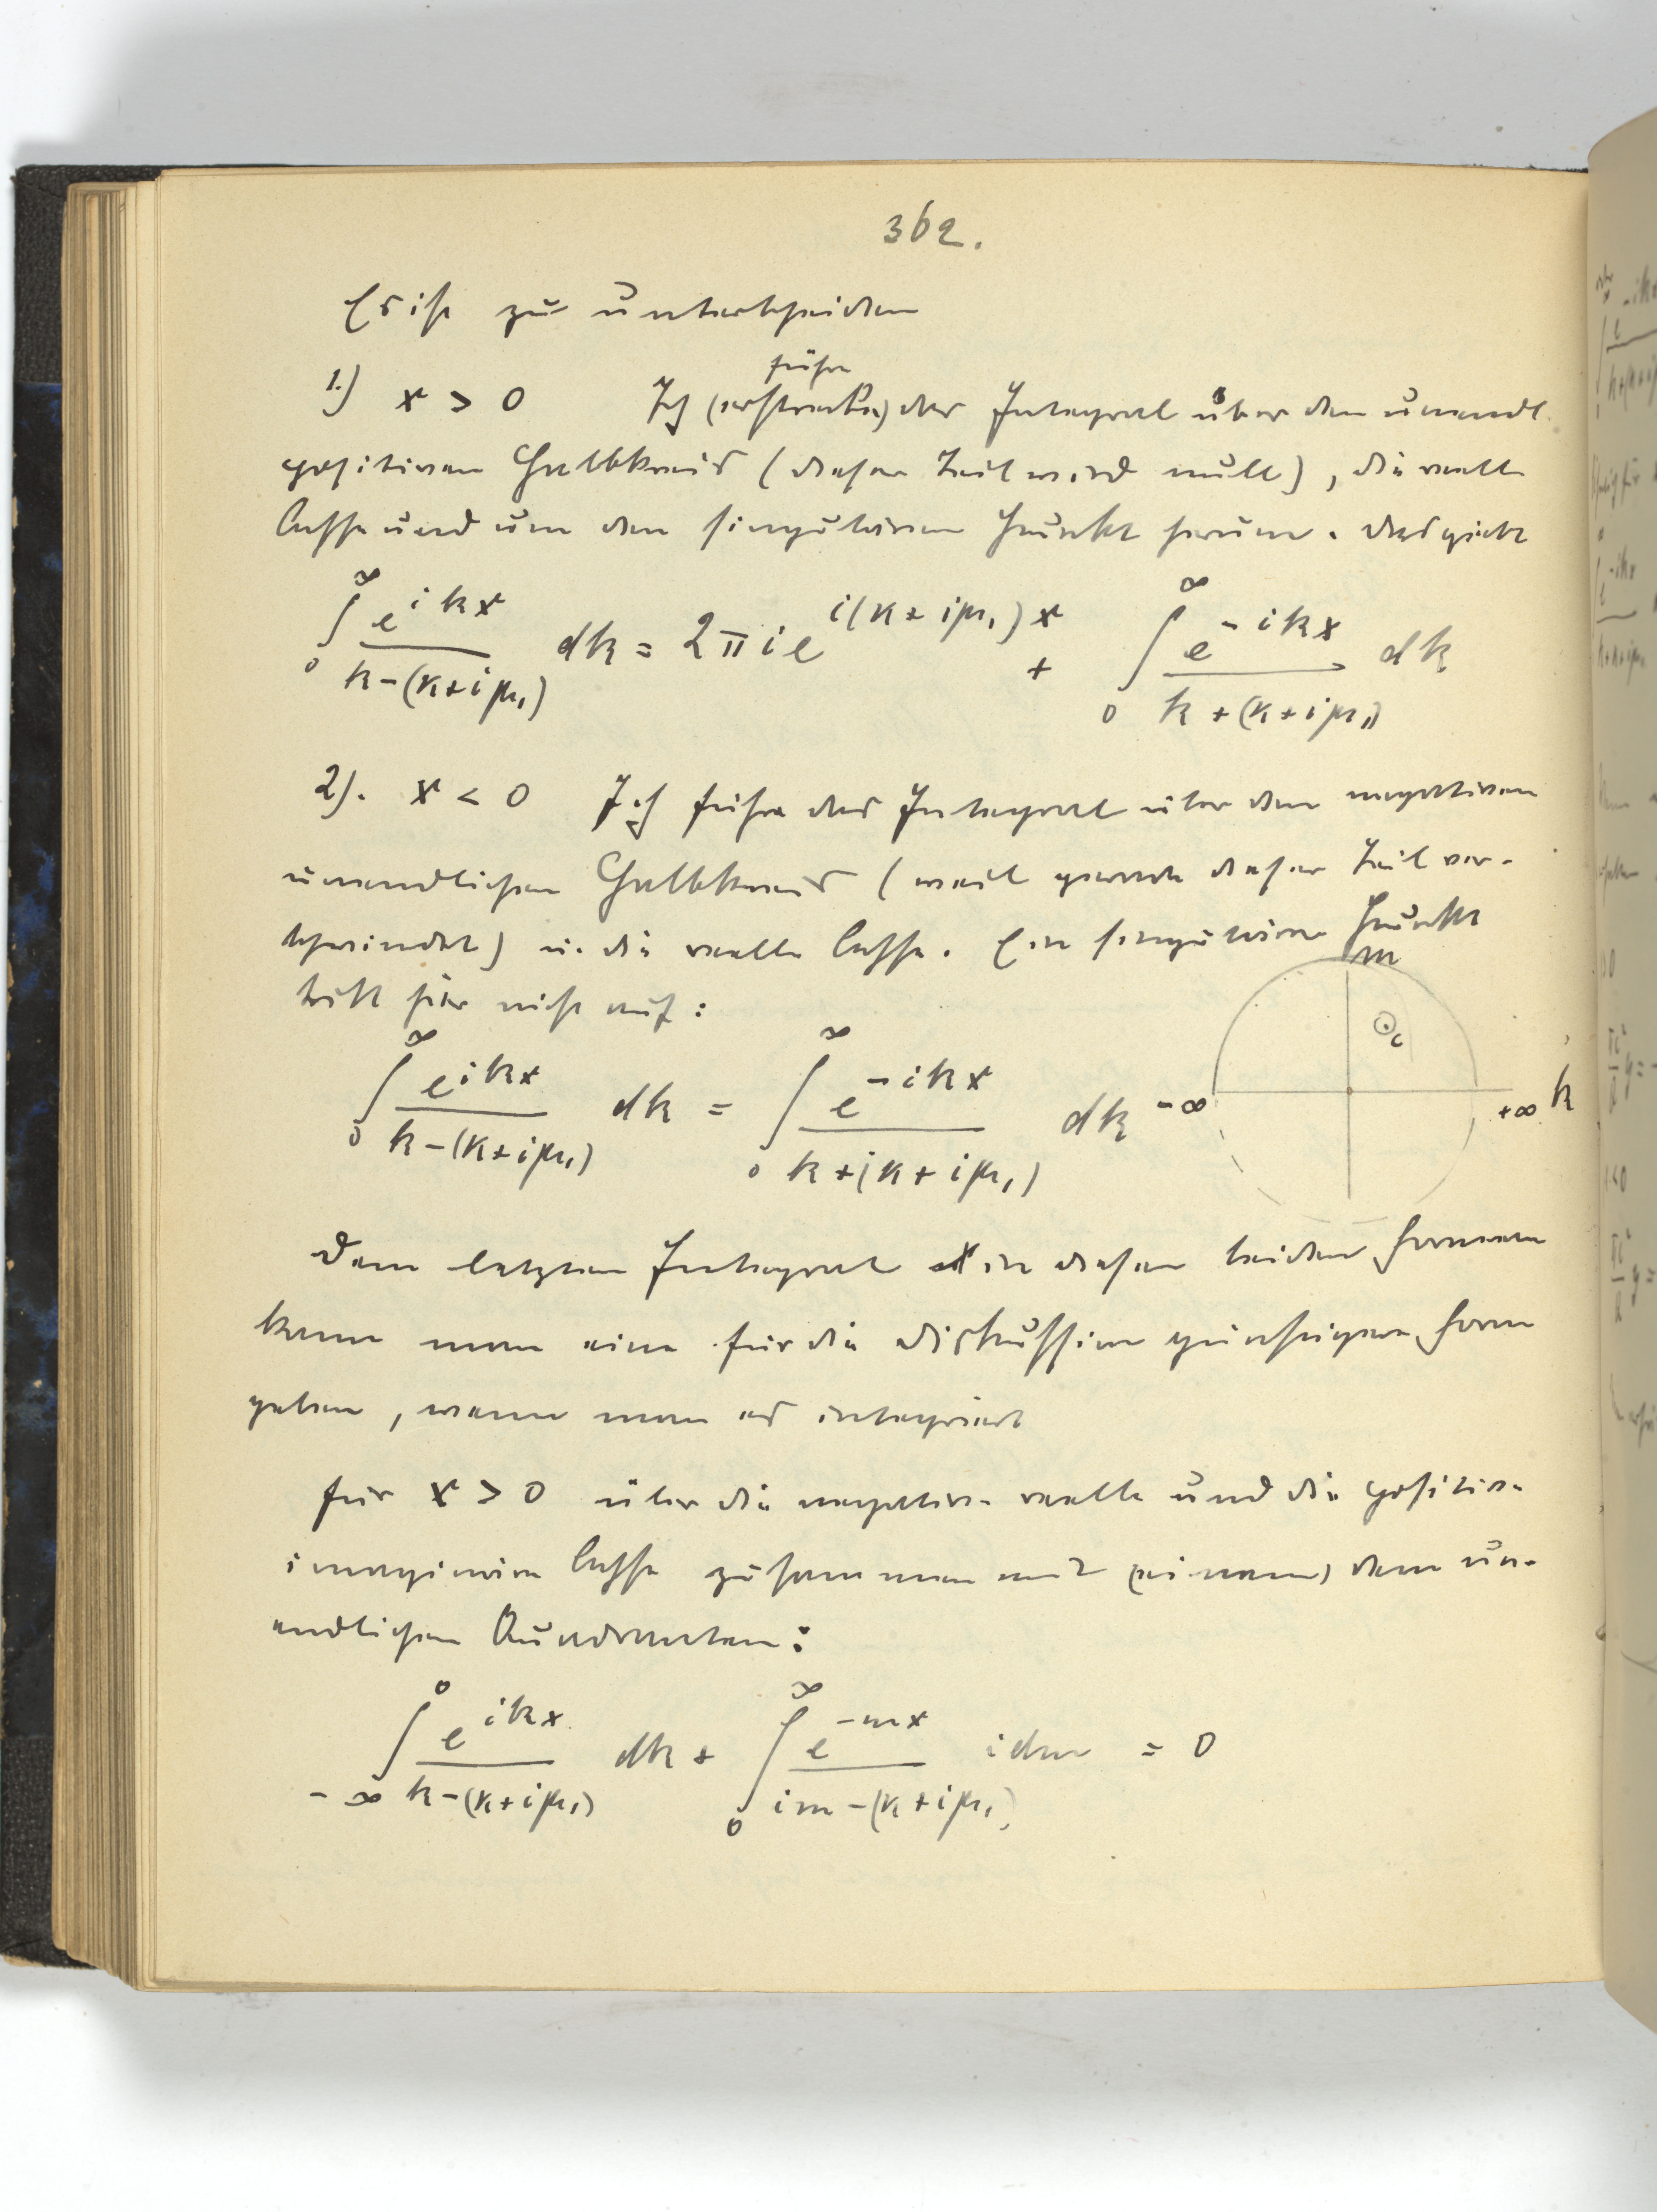 362.
Es ist zu unterscheiden
führe
1.) x > 0 Ich (erstrecke) das Integral über den unendl.
positiven Halbkreis (dieser Teil wird null), die reelle
Achse und um den singulären Punkt herum. Das giebt
∫₀^∞ e^{ikx}/(k-(κ+iμ₁)) dk = 2πi e^{i(κ+iμ₁)x} + ∫₀^∞ e^{-ikx}/(k+(κ+iμ₁)) dk
2). x < 0 Ich führe das Integral über den negativen
unendlichen Halbkreis (weil gerade dieser Teil ver-
schwindet) u. die reelle Achse. Ein singulärer Punkt
m
tritt hier nicht auf:
∫₀^∞ e^{ikx}/(k-(κ+iμ₁)) dk = ∫₀^∞ e^{-ikx}/(k+(κ+iμ₁)) dk
-∞ +∞ k
Dem letzten Integral in diesen beiden Formeln
kann man eine für die Diskussion günstigere Form
geben, wenn man es integriert
für x > 0 über die negative reelle und die positive
imaginäre Achse zusammen mit (einem) dem un-
endlichen Quadranten:
∫_{-∞}^0 e^{ikx}/(k-(κ+iμ₁)) dk + ∫₀^∞ e^{-mx}/(im-(κ+iμ₁)) idm = 0